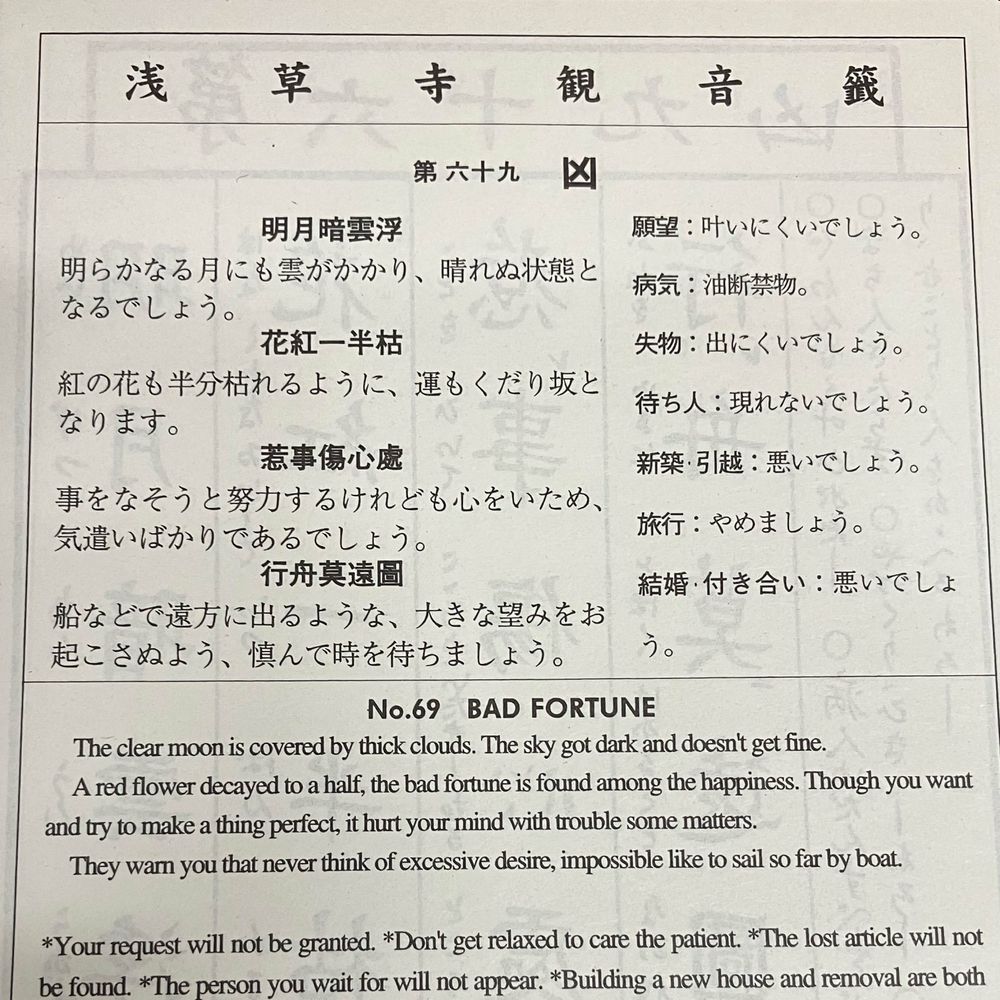 浅草寺観音籤
第六十九 凶
明月暗雲浮
明らかなる月にも雲がかかり、晴れぬ状態と
なるでしょう。
花紅一半枯
紅の花も半分枯れるように、運もくだり坂と
なります。
惹事傷心處
事をなそうと努力するけれども心をいため、
気遣いばかりであるでしょう。
行舟莫遠圖
船などで遠方に出るような、大きな望みをお
起こさぬよう、慎んで時を待ちましょう。
願望：叶いにくいでしょう。
病気：油断禁物。
失物：出にくいでしょう。
待ち人：現れないでしょう。
新築·引越：悪いでしょう。
旅行：やめましょう。
結婚·付き合い：悪いでしょ
う。
No.69 BAD FORTUNE
The clear moon is covered by thick clouds. The sky got dark and doesn't get fine.
A red flower decayed to a half, the bad fortune is found among the happiness. Though you want
and try to make a thing perfect, it hurt your mind with trouble some matters.
They warn you that never think of excessive desire, impossible like to sail so far by boat.
*Your request will not be granted. *Don't get relaxed to care the patient. *The lost article will not
be found. *The person you wait for will not appear. *Building a new house and removal are both